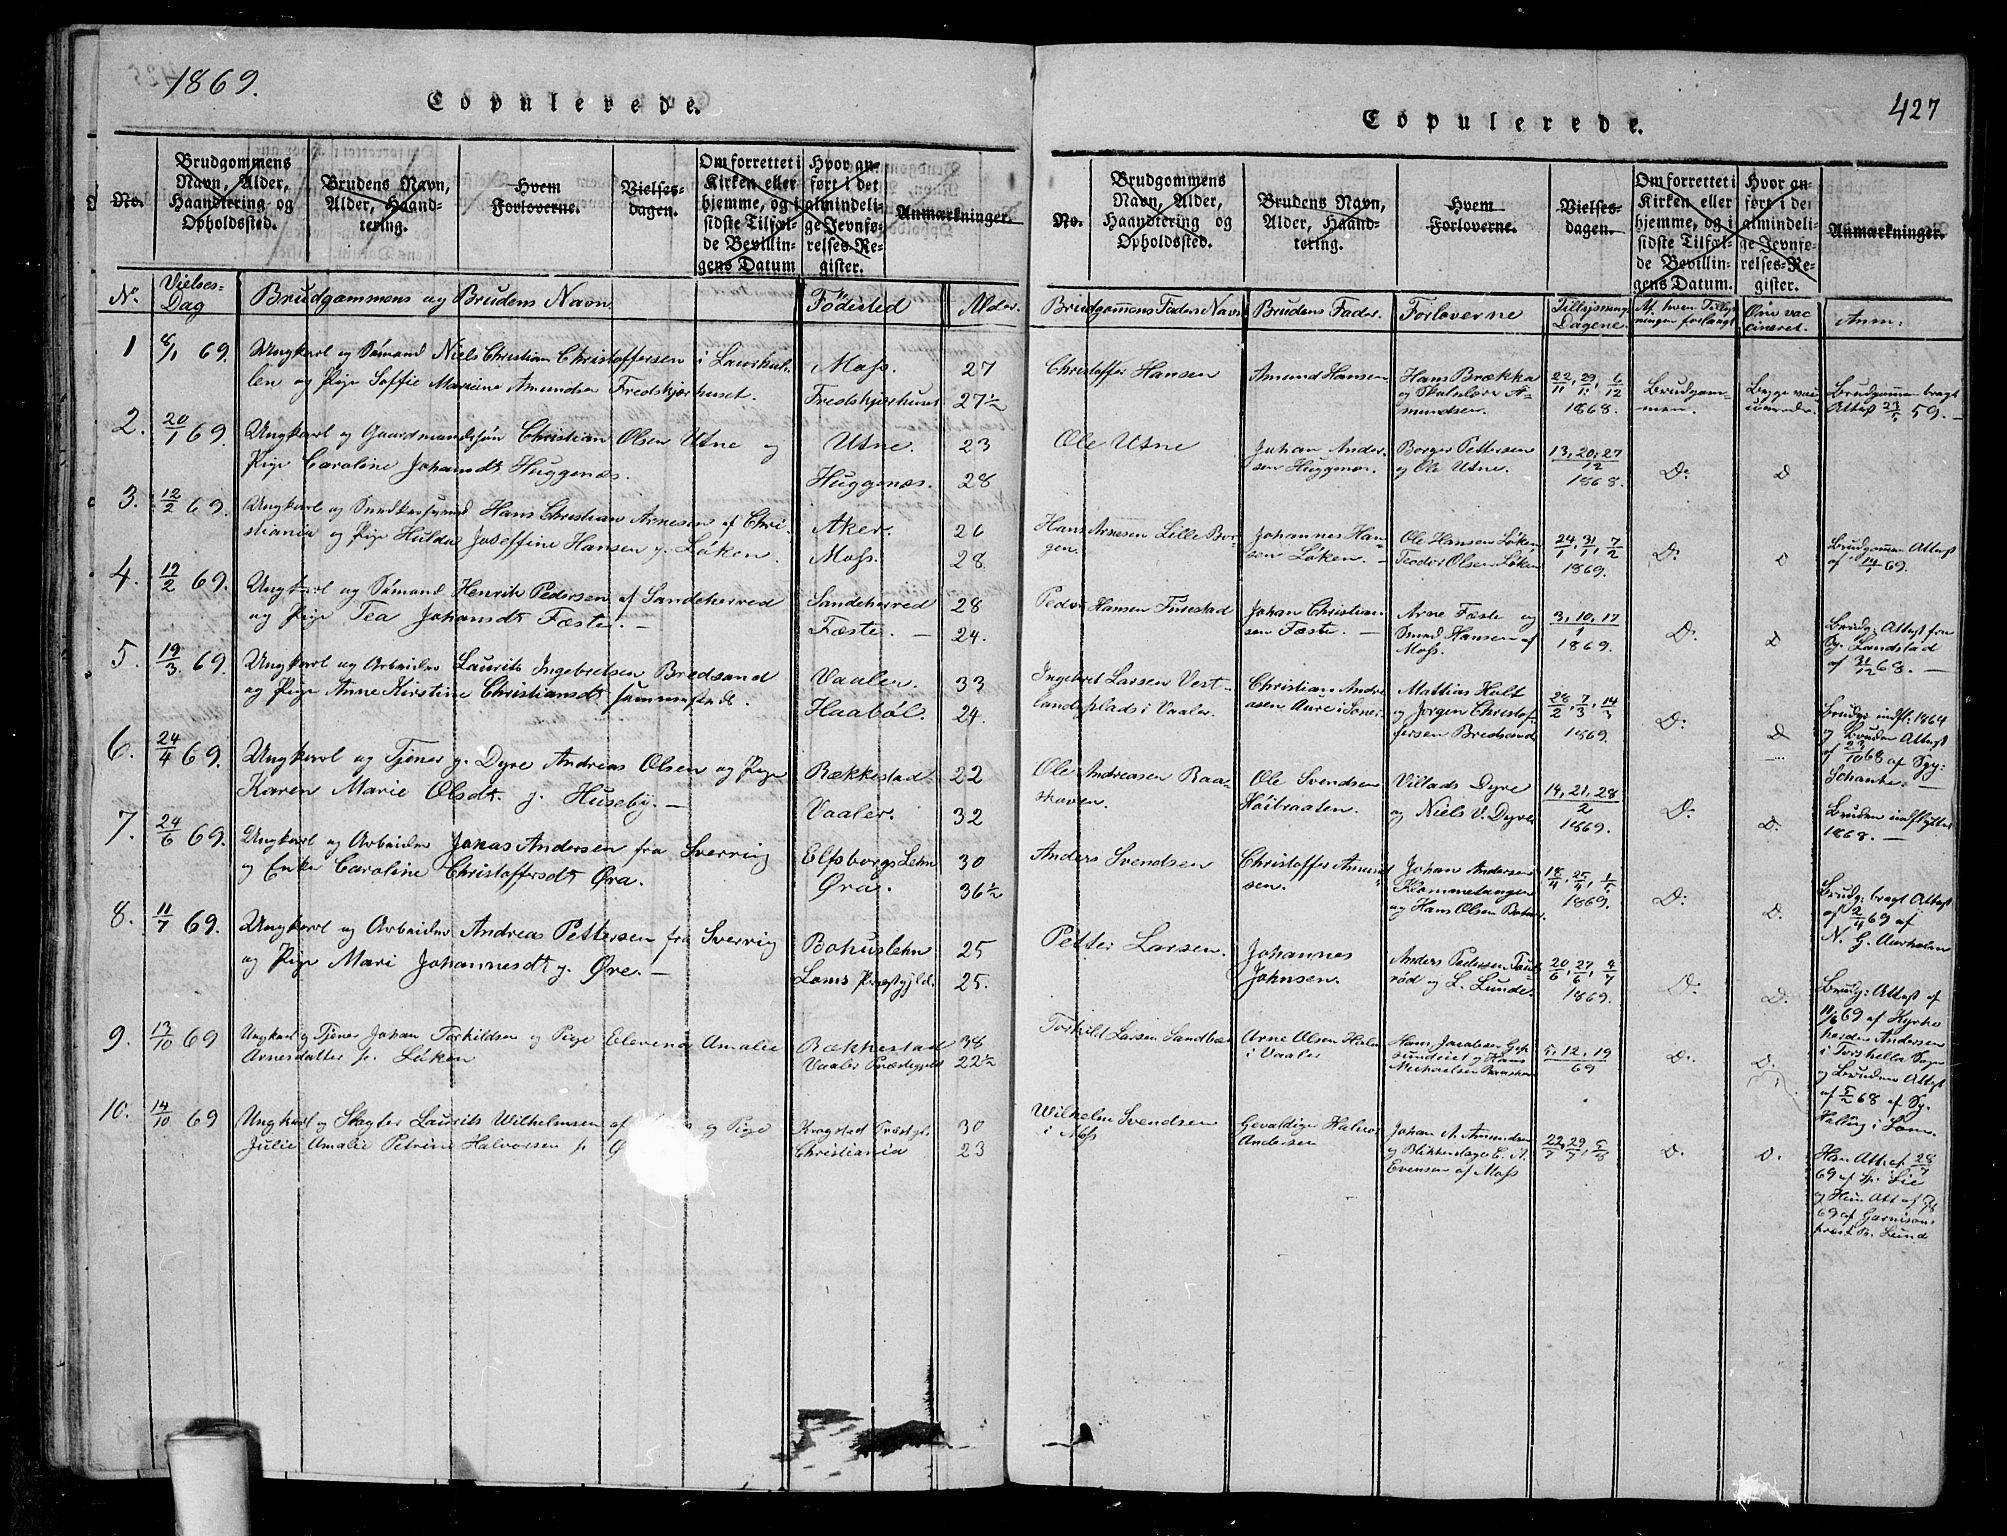 1869.
Copulerede.
No.
Brudgommens Navn, Alder, Haandtering og Opholdssted.
Brudens Navn, Alder, Haandtering.
Hvem Forloverne.
Vielsesdagen.
Om forrettet i Kirken eller hjemme, og i sidste Tilfælde Bevillingens Datum
Hvor anført i det almindelige Jevnførelses-Register.
Anmærkninger.
No. Vielses-Dag Brudgommens og Brudens Navn Fødested Alder.
1 8/1 69. Ungkarl og Sømand Niels Christian Christoffersen i Laurkul- Moss. 27
len og Pige Soffie Marine Amundsen Fredskjærhuset. Fredskjærhuset 27½
2. 20/1 69. Ungkarl og Gaardmandssøn Christian Olsen Utne og Utne. 23
Pige Caroline Johansdt Huggenæs. Huggenæs. 28
3. 12/2 69. Ungkarl og Hans Christian Arnesen af Chri- Aker. 26
stiania og Pige Hulda Joseffine Hansen p. Løken. Moss. 28
4. 12/2 69. Ungkarl og Sømand Henrik Pedersen af Sandeherred Sandeherred 28
og Pige Tea Johansdt Fæste. — Fæste. — 24.
5. 19/3 69. Ungkarl og Arbeider Laurits Ingebretsen Bredsand Vaaler. 33
og Pige Anne Kirstine Christiansdt sammestads. Haabøl. 24.
6. 24/4 69. Ungkarl og Tjener p. Dyre Andreas Olsen og Pige Rækkestad. 22
Karen Marie Olsdt. p. Huseby. — Vaaler. 32
7. 24/6 69. Ungkarl og Arbeider Jonas Andersen fra Sverrig Elfsborgs Lehn 30
og Enke Caroline Christoffersdt Øra. Øra. 36½
8. 11/7 69. Ungkarl og Arbeider Andreas Pettersen fra Sverrig Bohuslehn 25
og Pige Mari Johannesdt p. Øre. — Loms Præstgjld. 25.
9. 13/10 69 Ungkarl og Tjener Johan Torkildsen og Pige Elevine Amalie Rækkestad 38
Arnesdatter p. Løken Vaaler Præstegjeld 22½
10. 14/10 69 Ungkarl og Slagter Laurits Wilhelmsen af og Pige Kragstad Præstgj. 30
Julie Amalie Petrine Halvorsen p. Christiania 23
427
Copulerede.
No.
Brudgommens Navn, Alder, Haandtering og Opholdssted.
Brudens Navn, Alder, Haandtering.
Hvem Forloverne.
Vielsesdagen.
Om forrettet i Kirken eller hjemme, og i sidste Tilfælde Bevillingens Datum.
Hvor anført i det almindelige Jevnførelses-Register.
Anmærkninger.
Brudgommens Faders Navn Brudens Fader. Forloverne Tillysnings Dagene. Af hvem Tillysningen forlangt Om vaccineret. Anm:
Christoffer Hansen Amund Hansen Hans Brækka 22/11, 29/11, 6/12 Brudgom- Begge vac- Brudgommen bragt
mundsen. 1868. men. Attest 59. —
Ole Utne Johan Ander- Borger Pettersen 13, 20, 27 /12
sen Huggenæs. og Ole Utne. 1868. Do d
Hans Arnesen Lille Bor- Johannes Han- Ole Hansen Løken 24/1, 31/1, 7/2 Brudgommen Attest
gen. sen Løken. Teodor Olsen Løken 1869. D: d af 14/1 69.
Peder Hansen Furestad Johan Christian- Arne Fæste og 3, 10, 17 /1 Brudg. Attest fra
sen Fæste. — Smed Hansen af Moss. 1869. D: d Sp. Landstad
af 31/12 68. —
Ingebret Larsen Vest- Christian Andre- Mattias Hult 28/2, 7/3, 14/3 Brudg: indfl: 1864
landsplads i Vaaler. asen Aure i og Jørgen Christof- 1869. D: d og Bruden Attest
fersen Bredsand af 23/10 68 af Sp:
Schanke. —
Ole Andreasen Raa- Ole Svendsen Villads Dyre 14, 21, 28 /2 Bruden indflyttet
skoven. Høibraaten. og Niels V. Dyre 1869. D: d. 1868. —
Anders Svendsen Christoffer Amund- Johan Andersen 18/4, 25/4, 1/5 Brudg: bragt Attest
sen. Klommetangen 1869. D: d. af 2/4 69 af
og Hans Olsen N. G. Aurholm
Petter Larsen Johannes Anders Pedersen 20/6, 27/6, 4/7 Brudg: Attest af
Johnsen. rød og L. Lunde. 1869. D: d. 11/6 69 af Kyrko
herden Andersen
i Torskella Sogn
og Bruden Attest
af 5/2 68 af Sp.
Halling i Lom.
Torkild Larsen Sandbæ Arne Olsen i Vaaler Hans Jacobsen 5, 12, 19 /69 D. D.
sundriet og Hans
Michaelsen
Wilhelm Svendsen i Moss Gevaldiger Halvor Andersen Johan A. Amundsen 22/7, 29/7, 5/8 D. D. Han Att: af 28/7
og Blikkenslager E. A. 69 af Sp: Lie
Evensen af Moss og Hun Att: af 7/8
69 af Garnisons
præst Lund